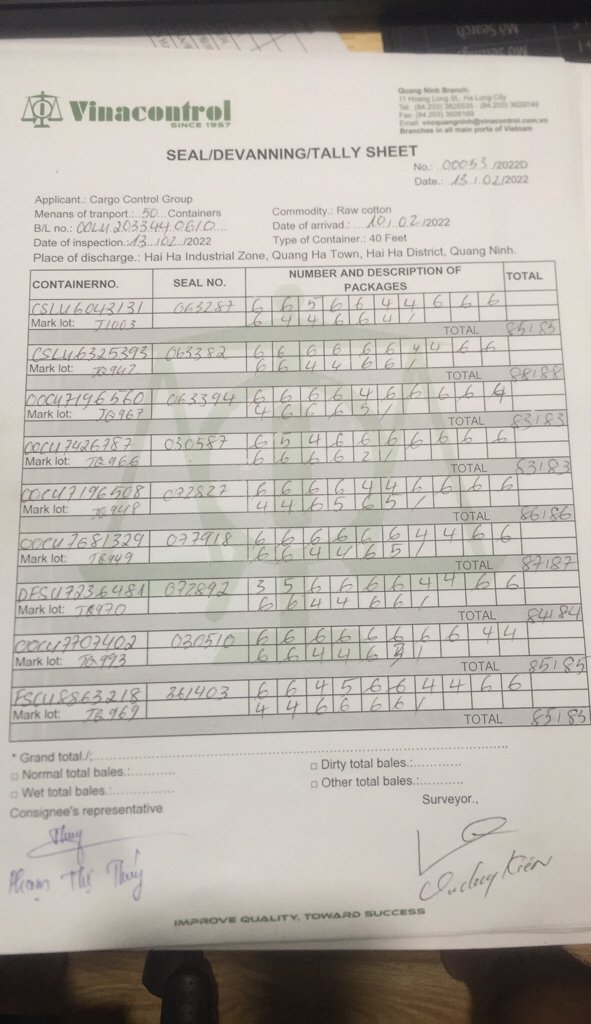 Vinacontrol
SINCE 1957
Quang Ninh Branch:
11 Hoang Long St., Ha Long City
Email: vncquangninh@vinacontrol.com.vn
Branches in all main ports of Vietnam
SEAL/DEVANNING/TALLY SHEET
No.: 00053 /2022D
Date.: 13 / 02/2022
Applicant.: Cargo Control Group
Menans of tranport.: 50 Containers
Commodity.: Raw cotton
B/L no.: OOLU 2033440610
Date of arrivad.: 10 / 02 /2022
Date of inspection.: 13 / 02 /2022
Type of Container.: 40 Feet
Place of discharge.: Hai Ha Industrial Zone, Quang Ha Town, Hai Ha District, Quang Ninh.
CONTAINERNO. SEAL NO. NUMBER AND DESCRIPTION OF PACKAGES TOTAL
CSLU6043131 063287 6 6 5 6 6 4 4 6 6 6
Mark lot: J1003 6 4 4 6 6 4 /
TOTAL 85/85
CSLU6325393 063382 6 6 6 6 6 6 4 4 6 6
Mark lot: JB947 6 6 4 4 6 6 /
TOTAL 88/88
OOCU7196560 063394 6 6 6 6 4 6 6 6 6 4
Mark lot: JB967 4 6 6 6 5 /
TOTAL 83/83
OOCU7426787 030587 6 5 4 6 6 6 6 6 6 6
Mark lot: JB966 6 6 6 6 2 /
TOTAL 83/83
OOCU7196508 072827 6 6 6 6 4 4 6 6 6 6
Mark lot: JB948 4 4 6 5 6 5 /
TOTAL 86/86
OOCU7681329 077918 6 6 6 6 6 6 4 4 6 6
Mark lot: JB949 6 6 4 4 6 5 /
TOTAL 87/87
DFSU7236481 072892 3 5 6 6 6 6 4 4 6 6
Mark lot: JB970 6 6 4 4 6 6 /
TOTAL 84/84
OOCU7707402 030510 6 6 6 6 6 6 6 6 4 4
Mark lot: JB993 6 6 4 4 6 3 /
TOTAL 85/85
FSCU8863218 361403 6 6 4 5 6 6 4 4 6 6
Mark lot: JB969 4 4 6 6 6 6 /
TOTAL 85/85
* Grand total./:
□ Normal total bales.:
□ Dirty total bales.:
□ Wet total bales.:
□ Other total bales.:
Consignee's representative
Surveyor.,
Thuy
Phạm Thị Thúy
IMPROVE QUALITY, TOWARD SUCCESS